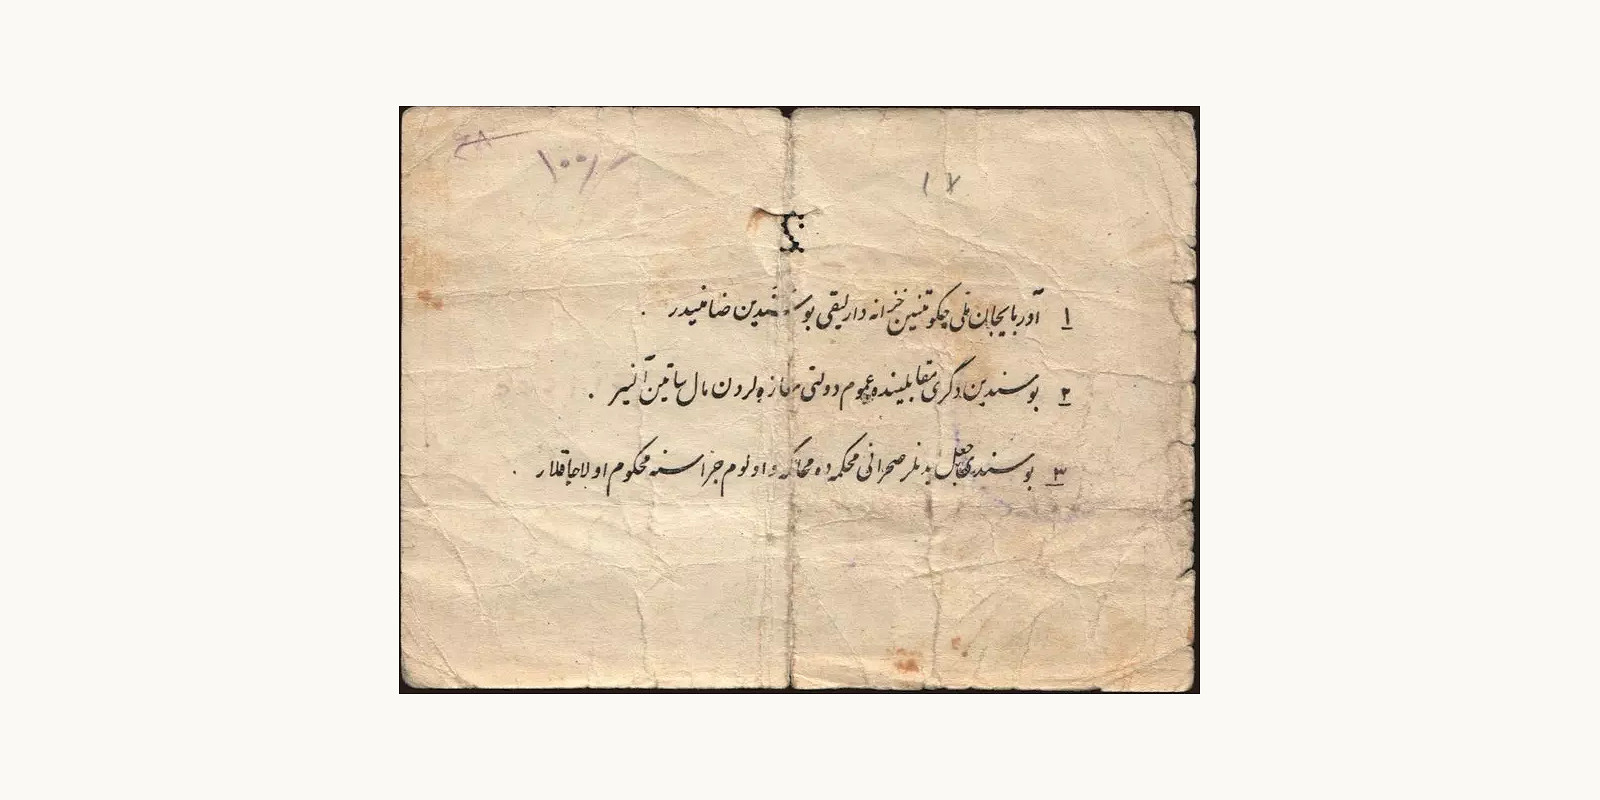 ۱۷
۱ آذربایجان ملی حکومتینین خزانه دارلیقی بو سندین ضامنیدر .
۲ بو سندین دگری مقابلینده عموم دولتی مغازه لردن مال ساتین آلنیر .
۳ بو سندی جعل ایدنلر صحرائی محکمه ده محاکمه و اولوم جزاسنه محکوم اولاجاقلار .